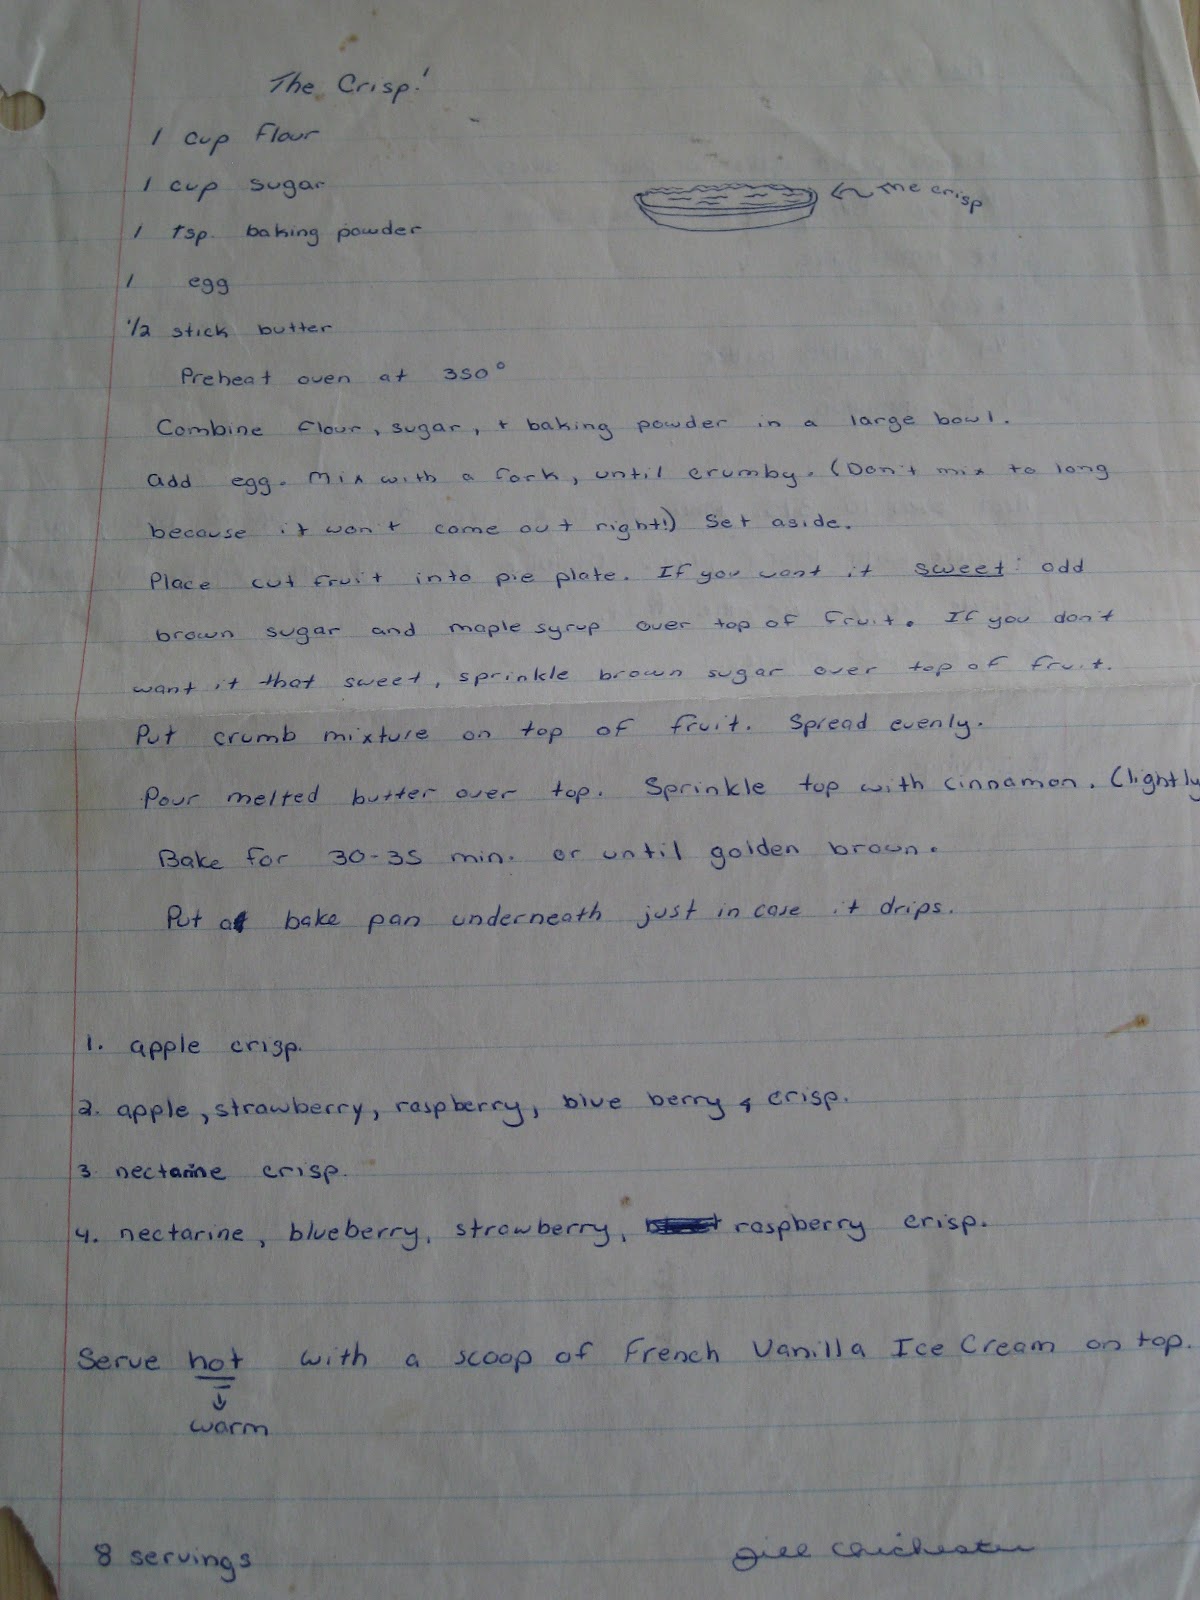 The Crisp!
1 cup flour
1 cup sugar
← the crisp
1 tsp. baking powder
1 egg
1/2 stick butter
Preheat oven at 350°
Combine flour, sugar, + baking powder in a large bowl.
add egg. Mix with a fork, until crumby. (Don't mix to long
because it won't come out right!) Set aside.
Place cut fruit into pie plate. If you want it sweet: add
brown sugar and maple syrup over top of fruit. If you don't
want it that sweet, sprinkle brown sugar over top of fruit.
Put crumb mixture on top of fruit. Spread evenly.
Pour melted butter over top. Sprinkle top with cinnamon. (lightly
Bake for 30-35 min. or until golden brown.
Put a bake pan underneath just in case it drips.
1. apple crisp.
2. apple, strawberry, raspberry, blue berry & crisp.
3. nectarine crisp.
4. nectarine, blueberry, strawberry, raspberry crisp.
Serve hot with a scoop of French Vanilla Ice Cream on top.
↓
warm
8 servings
Jill Chichester